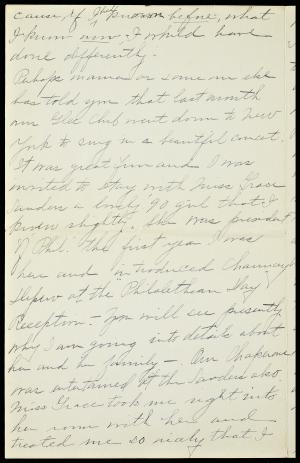 cause if I'd known before, what
I know now, I would have
done differently.
Perhaps mamma or some one else
has told you that last month
our Glee Club went down to New
York to sing in a beautiful concert.
It was great fun and I was
invited to stay with Miss Grace
Sanders a lovely '90 girl that I
knew slightly. She was president
of "Phil." the first year I was
here and introduced Chauncey
Depew at the "Philalethean Day
Reception. - You will see presently
why I am going into details about
her and her family -. Our Chaperone
was entertained at the Sanders also.
Miss Grace took me right into
her room with her and
treated me so nicely that I